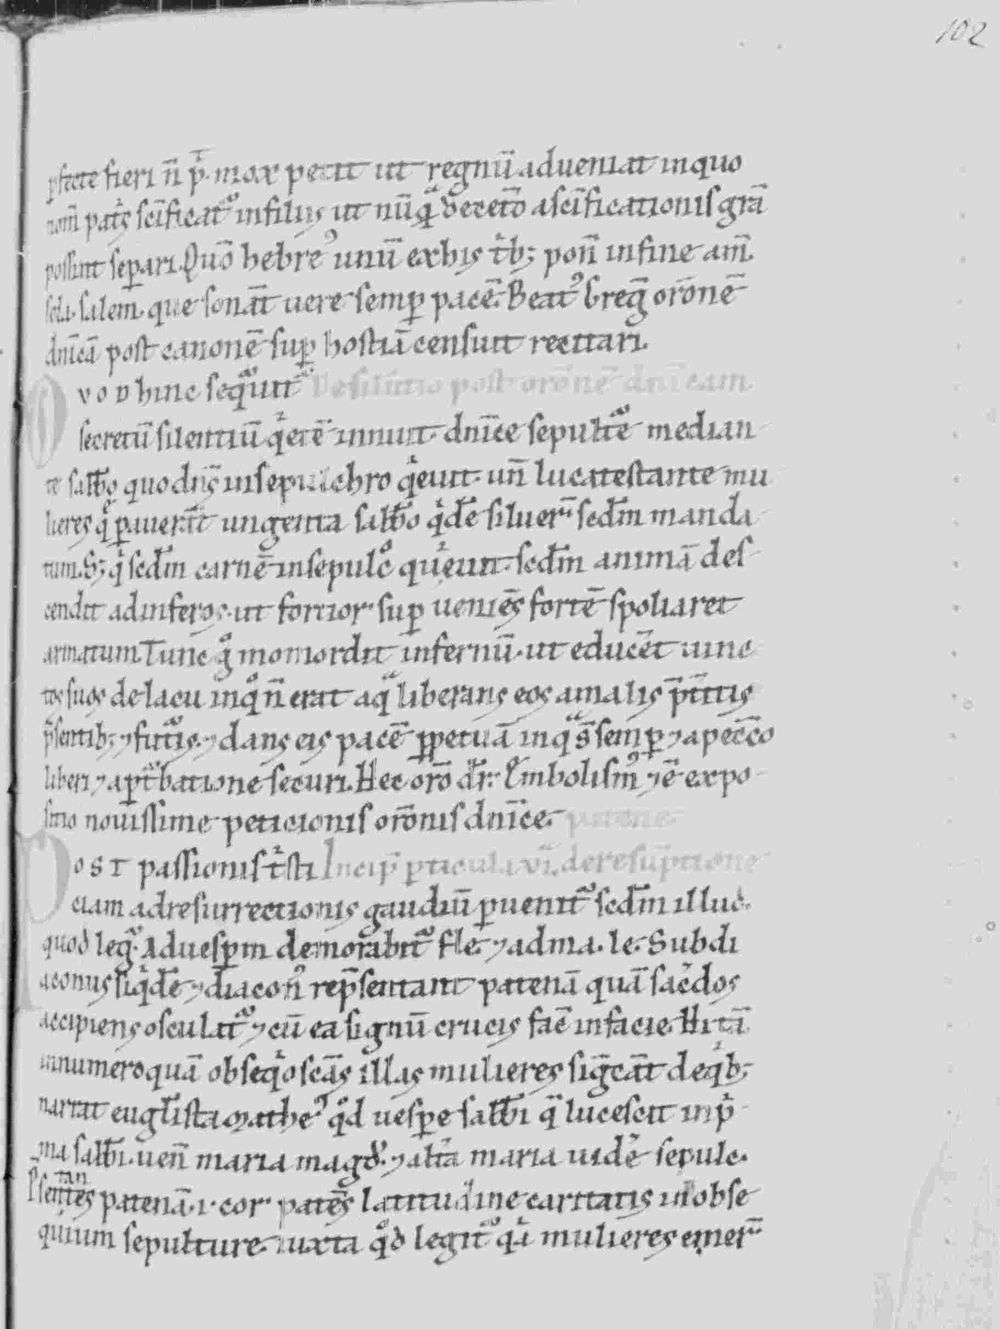 102
pfecte fieri n̄ p̄. mox petit ut regnū adueniat inquo
nom̄ pat̄s sc̄ificat᷒ infiliis ut nūq̄ deceto asc̄ificationis gr̄a
possint sep̄ari. Quō hebre᷒ unū exhis t̄b; pon̄ infine am̄.
sela. salem. que sonāt uere semp̄ pacē. Beat᷒ Greḡ or̄onē
dn̄icā post canonē sup̄ hostiā censuit recitari.
QVOD hinc seqūit᷒ De silentio post or̄onē dn̄icam
secretū silentiū q̄etē innuit. dn̄ice sepult᷒ē median
te sabb̄o quo dn̄s insepulchro q̄euit. un̄ luca testante mu
lieres q̄ pauer̄t ungenta sabb̄o q̄dē siluer̄ sed̄m manda
tum. S; q̄ sed̄m carnē insepulc̄o quieuit. sed̄m animā des
cendit adinferos. ut fortior sup̄ueniēs fortē spoliaret
armatum. Tunc q̊ momordit infernū. ut educēt uinc
tos suos de lacu inq̊ n̄ erat aq̄ liberans eos amalis p̄t̄itis
p̄sentib; ⁊ fut᷒is. ⁊ dans eis pacē ꝑpetuā inq̄ s̄ semp̄ ⁊ apecc̄o
liberi ⁊ apt̄batione securi. Hec or̄o dr̄. Embolism᷒ ⁊ ē expo
sitio nouissime peticionis or̄onis dn̄ice. patene.
POST passionis t̄sti Incip̄ p̄ticula .vi. de resūptione
ciam adresurrectionis gaudiū p̄uenit᷒ sed̄m illud.
quod leḡ. Aduesp̄m demorabit᷒ fle ⁊ adma. le. Subdi
aconus siq̄dē ⁊ diacon᷒ rep̄sentant patenā quā sac̄dos
accipiens osculat᷒ ⁊ cū ea signū crucis facē infacie. Hi tā
innumero quā obseq̄o sc̄as illas mulieres siḡcāt de q̄b;
narrat eugl̄ista Mathe᷒ q̊d uesp̄e sabb̄i q̄ lucescit inp̄
ma sabb̄i. uen̄ maria magd̄. ⁊ alt̄a maria uidē sepulc.
P̄sentantes patenā .i. cor patēs latitudine caritatis in obse
quium sepulture. iuxta q̊d legit᷒ q̄a mulieres emer̄